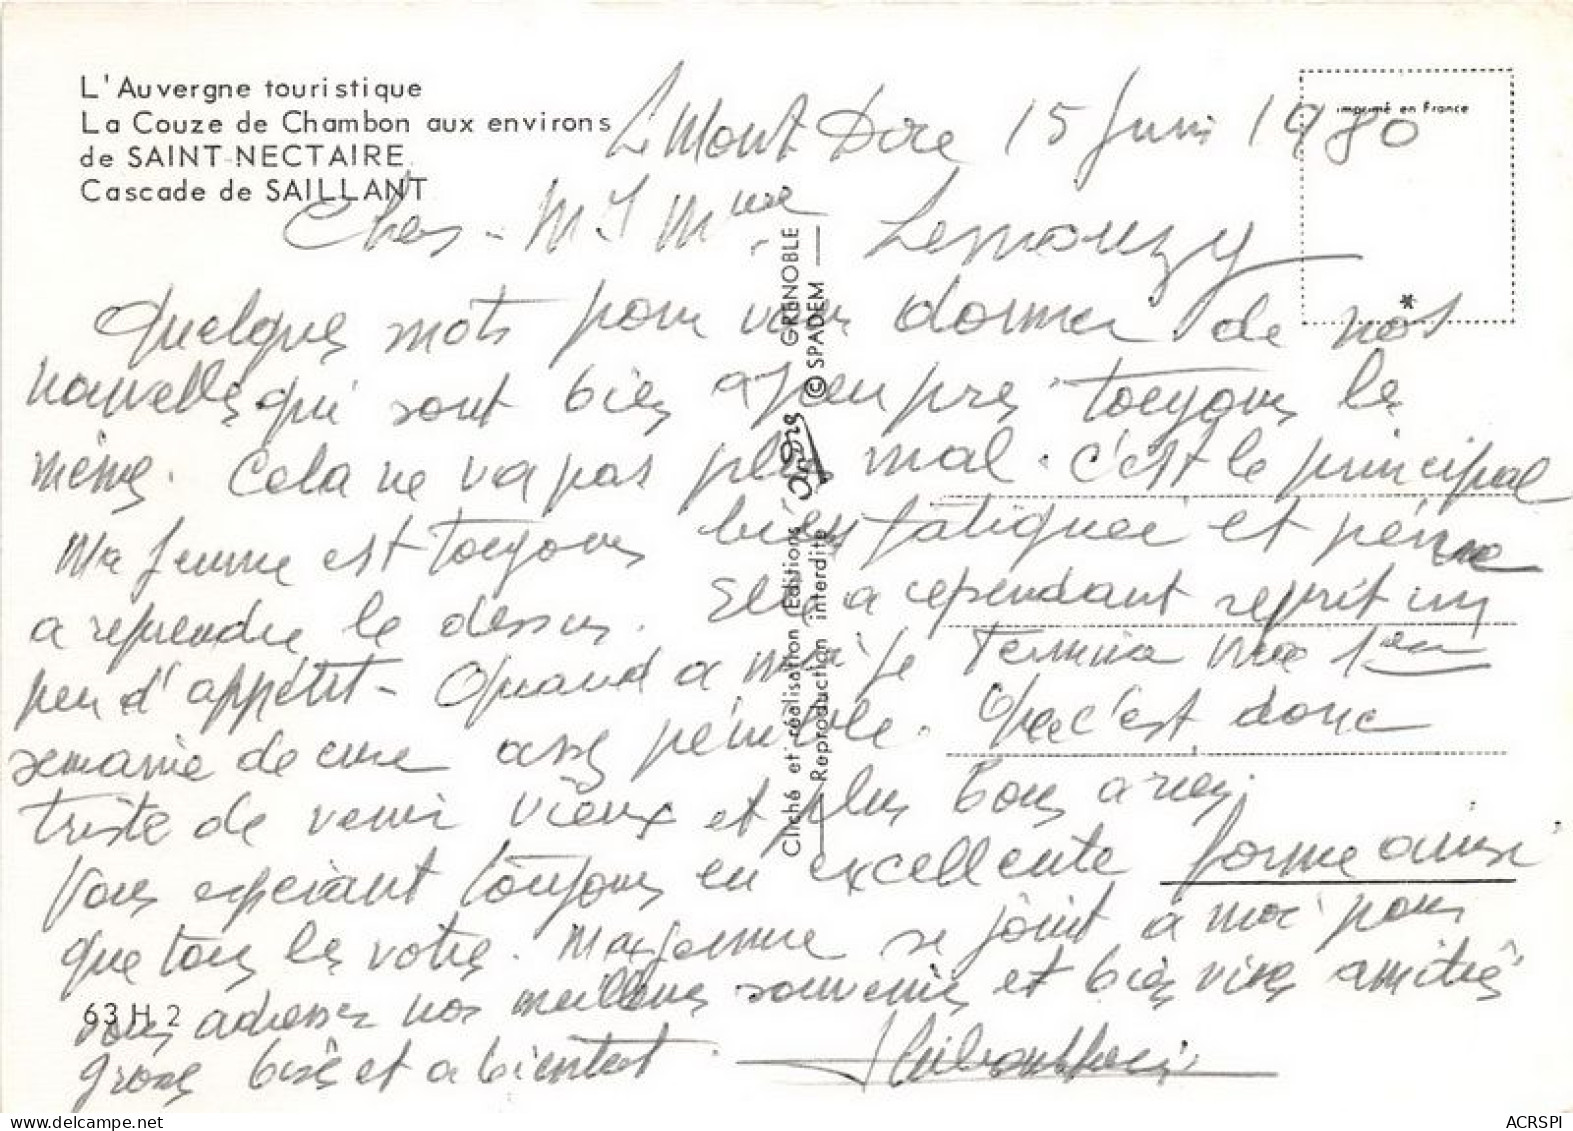 L'Auvergne touristique
La Couze de Chambon aux environs
de SAINT-NECTAIRE
Cascade de SAILLANT
imprimé en France
Le Mont Dore 15 Juin 1980
Chers - M. & Mme
Quelques mots pour vous donner de nos
nouvelles qui sont bien a peu pres toujours les
mêmes. Cela ne va pas plus mal. c'est le principal
Ma femme est toujours bien fatiguée et peine
a reprendre le dessus. Elle a cependant reprit un
peu d'appétit - Quand a moi je termine ma 1ere
semaine de cure assez pénible. Que c'est donc
triste de venir vieux et plus bons a rien.
Vous espérant toujours en excellente forme ainsi
que tous les votres. Ma femme se joint a moi pour
vous adresser nos meilleurs souvenirs et bien vives amitiés
grosses bises et a bientot
63 H 2
Cliché et réalisation Editions André GRENOBLE
Reproduction interdite © SPADEM
*
ACRSPI